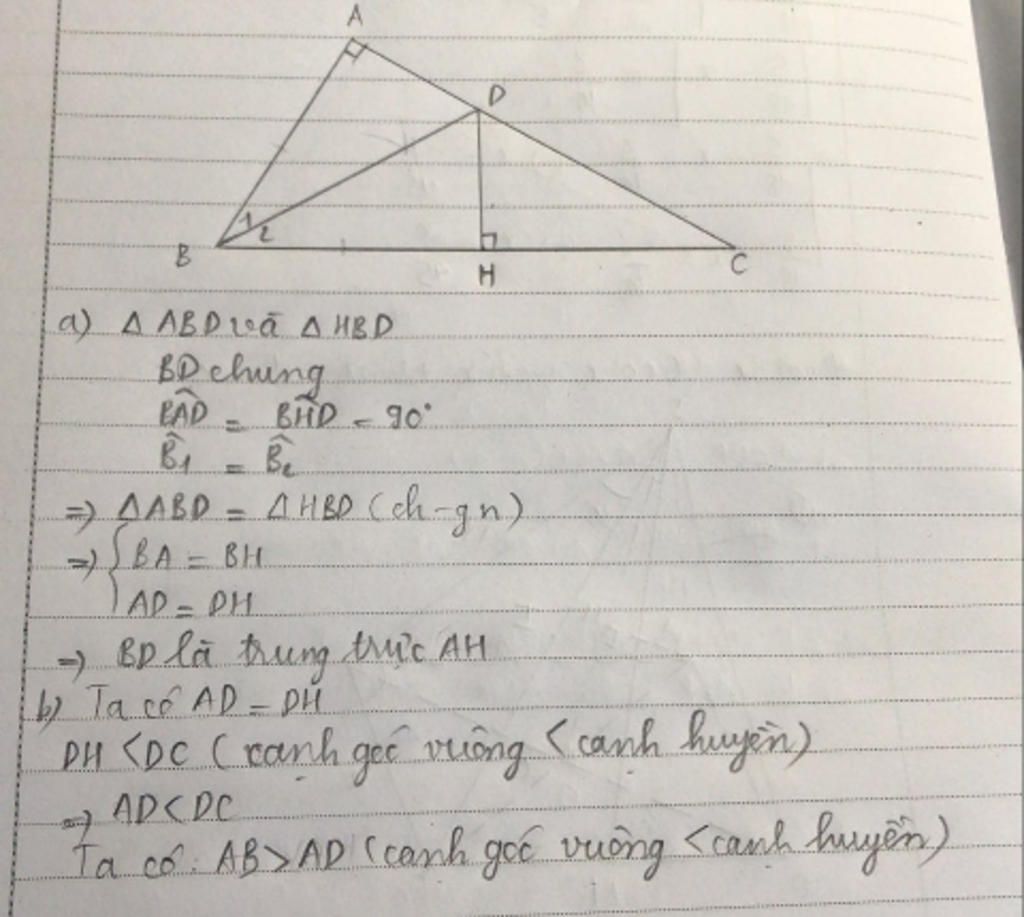 A
D
1
2
B
H
C
a) Δ ABD và Δ HBD
BD chung
B̂AD = B̂HD = 90°
B̂1 = B̂2
=> ΔABD = ΔHBD (ch-gn)
=> { BA = BH
AD = DH
=> BD là trung trực AH
b) Ta có AD = DH
DH < DC (cạnh góc vuông < cạnh huyền)
=> AD < DC
Ta có: AB > AD (cạnh góc vuông < cạnh huyền)